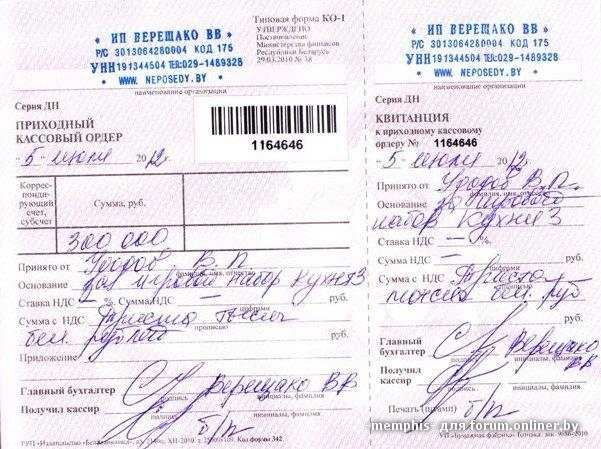 * ИП ВЕРЕЩАКО ВВ *
Р/С 3013064280004 КОД 175
УНН191344504 ТЕЛ:029-1489328
* WWW. NEPOSEDY.BY *
наименование организации
Типовая форма КО-1
УТВЕРЖДЕНО
Постановление
Министерства финансов
Республики Беларусь
29.03.2010 № 38
Серия ДН
ПРИХОДНЫЙ
КАССОВЫЙ ОРДЕР
1164646
5 июля 2012г.
Коррес-
понди-
рующий
счет,
субсчет
Сумма, руб.
300 000
Принято от Удодов В.П.
фамилия, имя, отчество
Основание за игровой набор Кухня 3
Ставка НДС — %. Сумма НДС — руб.
цифрами
Сумма с НДС Триста тысяч
прописью
бел. рублей руб.
Приложение
Главный бухгалтер Верещако ВВ
подпись инициалы, фамилия
Получил кассир б/п
подпись инициалы, фамилия
РУП «Издательство «Белбланкавыд», XII-2010. Код формы 342.
* ИП ВЕРЕЩАКО ВВ *
Р/С 3013064280004 КОД 175
УНН191344504 ТЕЛ:029-1489328
* WWW. NEPOSEDY.BY *
наименование организации
Серия ДН
КВИТАНЦИЯ
к приходному кассовому
ордеру № 1164646
5 июля 2012г.
Принято от Удодов В.П.
фамилия, имя, отчество
Основание за игровой
набор Кухня 3
Ставка НДС — %.
Сумма НДС — руб.
цифрами
Сумма с НДС Триста
тысяч бел. руб
Главный
бухгалтер Верещако ВВ
подпись инициалы, фамилия
Получил
кассир
подпись инициалы, фамилия
Печать (штамп) б/п
УП «Бумажная фабрика» Гознака. Зак. 9686-2010
-memphis- для forum.onliner.by